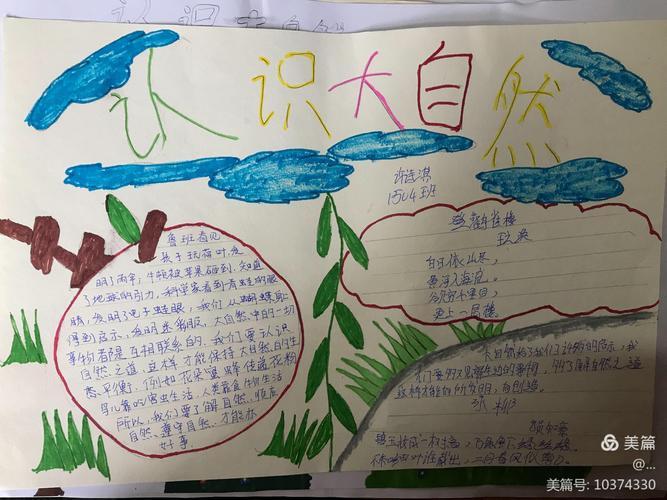 认识大自然
许连淇
1504班
鲁班看见
孩子玩荷叶,发
明了雨伞,牛顿被苹果砸到,知道
了地球的引力,科学家看到青蛙的眼
睛,发明了电子蛙眼,我们从蝴蝶身上
得到启示,发明迷彩服,大自然中的一切
事物都是互相联系的,我们要认识
自然之道,这样才能保持大自然的生
态平衡,例如花朵退蜂传递花粉
鸟儿靠吃害虫生活,人类靠食物生活
所以,我们要了解自然,顺应
自然,遵守自然,才能办
好事。
登鹳雀楼
白日依山尽,
黄河入海流。
欲穷千里目,
更上一层楼
大自然给了我们了许多的启示,我
们要
这样才能有所发明,有创造。
咏柳
碧玉妆成一树高,万条垂下绿丝绦。
不知细叶谁裁出,二月春风似剪刀。
美篇
@...
美篇号: 10374330